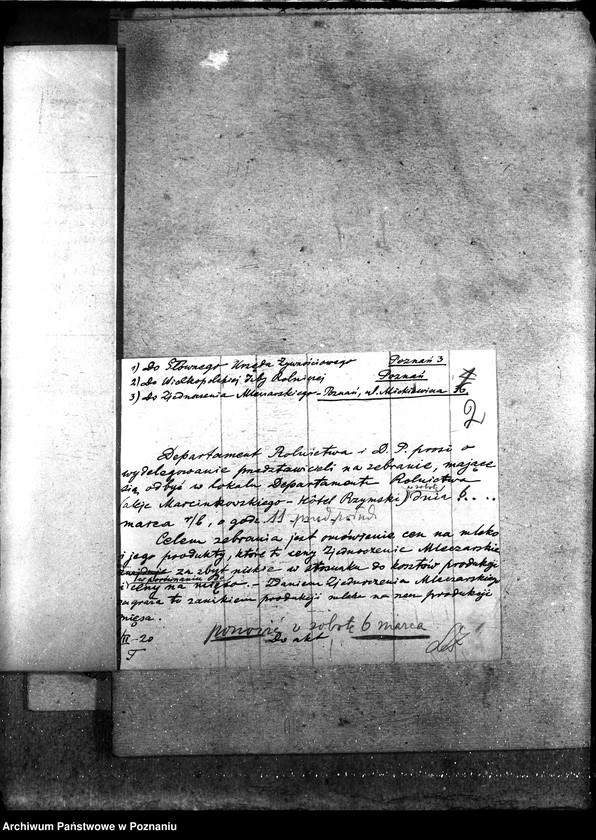 1) Do Głównego Urzędu Żywnościowego Poznań 3
2) Do Wielkopolskiej Izby Rolniczej Poznań
3) Do Zjednoczenia Mleczarskiego - Poznań, ul. Mickiewicza
2
Departament Rolnictwa i D. P. prosi o
wydelegowanie przedstawicieli na zebranie, mające
się odbyć w lokalu Departamentu Rolnictwa
(aleje Marcinkowskiego - Hôtel Rzymski) w sobotę dnia 6. ...
marca r/b, o godz. 11 przed połud.
Celem zebrania jest omówienie cen na mleko
i jego produkty, które to ceny Zjednoczenie Mleczarskie
znajduje za zbyt niskie w stosunku do kosztów produkcji
i w porównaniu do ceny na mięso. - Zdaniem Zjednoczenia Mleczarskiego
zagraża to zanikiem produkcji mleka na rzecz produkcji
mięsa.
ponowić w sobotę 6 marca
II-20 Do akt
T
Archiwum Państwowe w Poznaniu